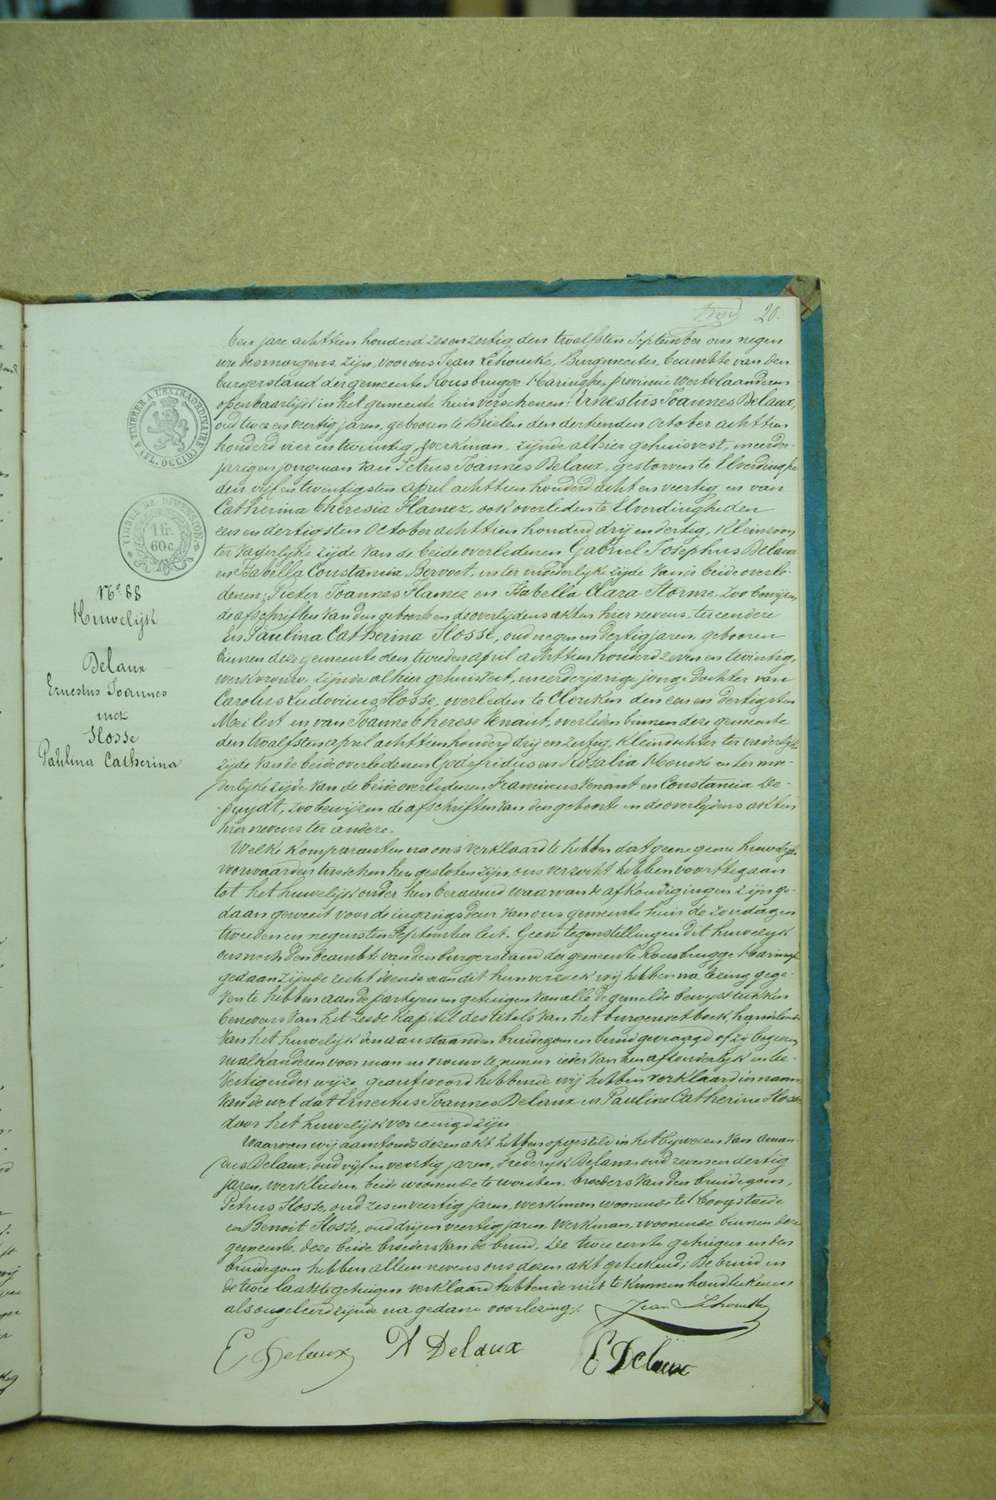 20.
Een jare achttien honderd zesenzestig den twaalfsten September om negen
ure des morgens, zijn voor ons Jean Lehoucke, Burgmeester, beambte van den
burgerstand der gemeente Rousbrugge Haringhe, provincie Westvlaanderen
openbaarlijk in het gemeente huis verschenen: Ernestus Joannes Delaux,
oud twee en veertig jaren, geboren te Brielen den dertienden October achttien
honderd vier en twintig, werkman, zijnde alhier gehuisvest, meerder-
jarigen jongman van Petrus Joannes Delaux, gestorven te Elverdinghe
den vijf en twintigsten April achttien honderd acht en veertig, en van
Catherina Theresia Flamez, ook overleden te Elverdinghe den
een en dertigsten October achttien honderd drij en dertig, kleinzoon
ter vaderlijke zijde van de beide overledenen Gabriel Josephus Delaux
en Isabella Constantia Bervoet, en ter moederlijke zijde van de beide overle-
denen, Pieter Joannes Flamez en Isabella Clara Storme, zoo bewijzen
de afschriften van den geboorte en de overlijdens akten hier nevens, ter eendere
En Paulina Catherina Hosse, oud negen en dertig jaren, geboren
binnen deze gemeente den tweeden april achttien honderd zeven en twintig,
werkvrouw, zijnde alhier gehuisvest, meerderjarige jonge dochter van
Carolus Ludovicus Hosse, overleden te Clercken den een en dertigsten
Mei lest en van Joanne Therese Venant, overleden binnen deze gemeente
den twaalfsten april achttien honderd drij en zestig, kleindochter ter vaderlijke
zijde van de beide overledenen Godefridus en Rosalia en ter moe-
derlijke zijde van de beide overledenen Franciscus Venant en Constancia De-
puydt, zoo bewijzen de afschriften van den geboorte en de overlijdens akten
hier nevens ter andere.
Welke komparanten na ons verklaard te hebben dat geene huwelijks
voorwaarden tusschen hen gesloten zijn, ons verzocht hebben voort te gaan
tot het huwelijk onder hen beraamd waarvan de afkondigingen zijn ge-
daan geweest voor de ingangs deur van ons gemeente huis de zondagen
tweeden en negensten September lest. Geen tegenstellingen dit huwelijk
ons noch den beambte van den burgerstand der gemeente Rousbrugge Haringhe
gedaan zijnde recht doende aan dit hun verzoek wij hebben na lezing gege-
ven te hebben aan de partijen en getuigen van alle de gemelde bewijsstukken
benevens van het zesde kapittel des titels van het burger wetboek, handelende
van het huwelijk den aanstaanden bruidegom en bruid gevraagd of zij begeeren
malkanderen voor man en vrouw te nemen ieder van hen afzonderlijk en be-
vestigender wijze geantwoord hebbende wij hebben verklaard in naam
van de wet dat Ernestus Joannes Delaux en Pauline Catherine Hosse
door het huwelijk vereenigd zijn
Waarvan wij aanstonds dezen akt hebben opgesteld in het bijwezen van Aman-
dus Delaux, oud vijf en veertig jaren, Frederijk Delaux oud zeven en dertig
jaren, werklieden, beide woonende te Woesten, broeders van den bruidegom,
Petrus Hosse, oud zes en veertig jaren, werkman woonende te Hoogstaede
en Benoit Hosse, oud drij en veertig jaren, werkman, woonende binnen deze
gemeente, deze beide broeders van de bruid. De twee eerste getuigen en den
bruidegom hebben alleen nevens ons dezen akt geteekend, de bruid en
de twee laatste getuigen verklaard hebbende niet te kunnen handteekenen
als ongeleerd zijnde na gedane voorlezing.
Jean Lehoucke
E Delaux A Delaux E Delaux
TIMBRE A L'EXTRAORDINAIRE
FL. OCCID.
TIMBRE DE DIMENSION
1 fr.
60 c.
No. 88
Huwelijk
Delaux
Ernestus Joannes
met
Hosse
Paulina Catherina